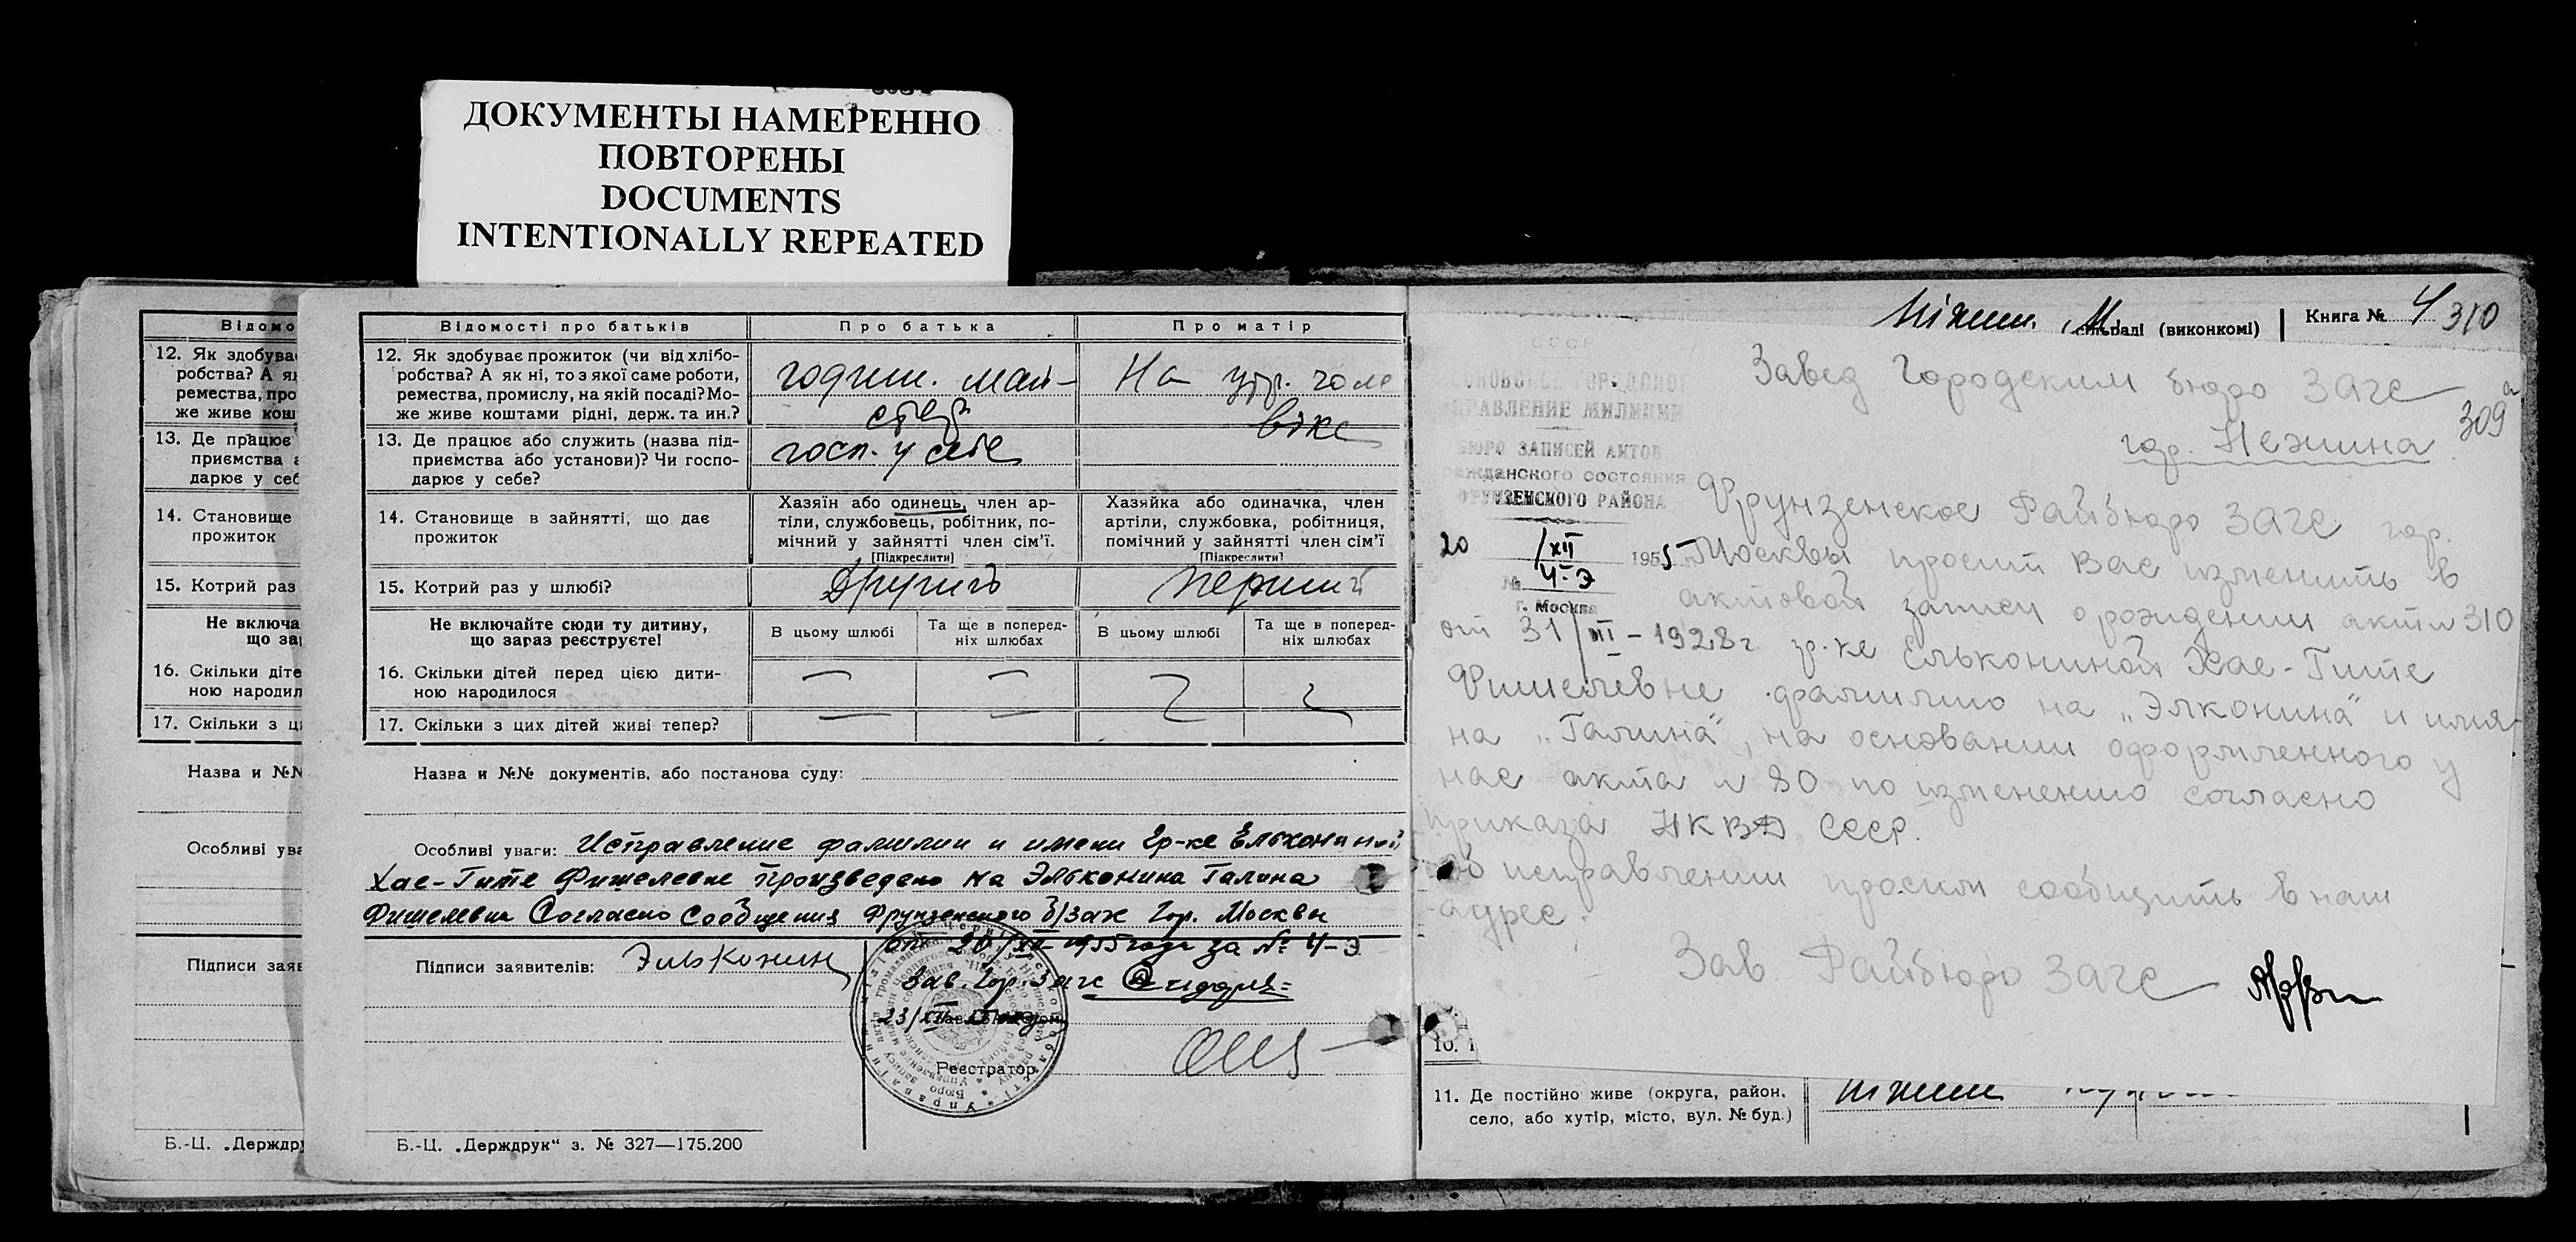 ДОКУМЕНТЫ НАМЕРЕННО
ПОВТОРЕНЫ
DOCUMENTS
INTENTIONALLY REPEATED
Відомо
12. Як здобуває
робства? А як
ремества, про
же живе кош
13. Де працює
приємства а
дарює у себ
14. Становище
прожиток
15. Котрий раз
Не включа
що за
16. Скільки діте
ною народил
17. Скільки з ц
Назва и №№
Особливі ува
Підписи заяв
Б.-Ц. „Держдр
Відомості про батьків
Про батька
Про матір
12. Як здобуває прожиток (чи від хлібо-
робства? А як ні, то з якої саме роботи,
ремества, промислу, на якій посаді? Мо-
же живе коштами рідні, держ. та ин.?
годин. май-
стер
На утр. чоло
віка
13. Де працює або служить (назва під-
приємства або установи)? Чи госпо-
дарює у себе?
госп. у себе
14. Становище в зайнятті, що дає
прожиток
Хазяїн або одинець, член ар-
тіли, службовець, робітник, по-
мічний у зайнятті член сім'ї.
[Підкреслити]
Хазяйка або одиначка, член
артіли, службовка, робітниця,
помічний у зайнятті член сім'ї
[Підкреслити]
15. Котрий раз у шлюбі?
Другий
Перший
Не включайте сюди ту дитину,
що зараз реєструєте!
В цьому шлюбі
Та ще в поперед-
ніх шлюбах
В цьому шлюбі
Та ще в поперед-
ніх шлюбах
16. Скільки дітей перед цією дити-
ною народилося
17. Скільки з цих дітей живі тепер?
Назва и №№ документів, або постанова суду:
Особливі уваги: Исправление фамилии и имени гр-ке Елькониной
Хае-Гите Фишелевне произведено на Эльконина Галина
Фишелевна Согласно сообщения Фрунзенского б/загс гор. Москвы
от 20/XII 1955 года за № 4-Э
Підписи заявителів: Эльконин
Зав. Гор. Загс
23/XII
Реєстратор
Б.-Ц. „Держдрук“ з. № 327—175.200
Ніжин. М. сільраді (виконкомі)
Книга № 4
310
309
СССР
УПРАВЛЕНИЕ МИЛИЦИИ
БЮРО ЗАПИСЕЙ АКТОВ
гражданского состояния
ФРУНЗЕНСКОГО РАЙОНА
20 /XII 1955
№ 4-Э
г. Москва
Завед Городским бюро ЗАГС
гор. Нежина
Фрунзенское Райбюро ЗАГС гор.
Москвы просит Вас изменить в
актовой записи о рождении акт № 310
от 31/III - 1928 г. гр-ке Ельконинои Хае-Гите
Фишелевне фамилию на „Элконина“ и имя
на „Галина“, на основании оформленного у
нас акта № 80 по изменению согласно
приказа НКВД СССР.
Об исправлении просим сообщить в наш
адрес.
Зав Райбюро ЗАГС
10.
11. Де постійно живе (округа, район,
село, або хутір, місто, вул. № буд.)
Ніжин